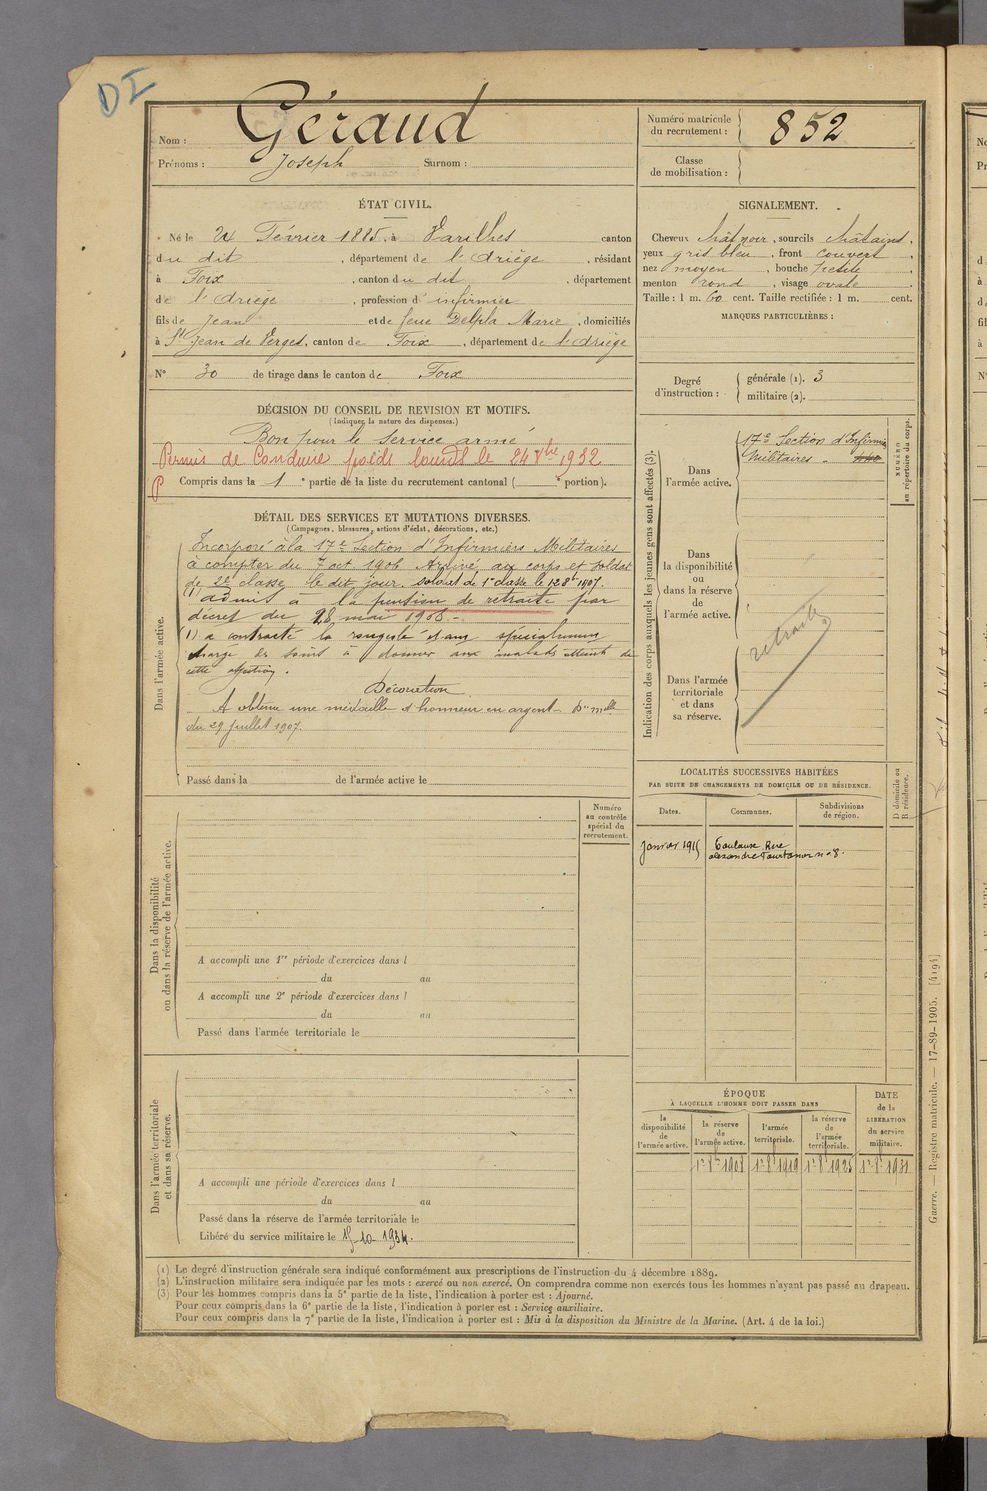 DI
Nom : Géraud
Prénoms : Joseph Surnom :
Numéro matricule
du recrutement : 852
Classe
de mobilisation :
ÉTAT CIVIL.
Né le Février 1885, à Varilhes canton
du dit, département de l'Ariège, résidant
à Foix, canton du dit, département
de l'Ariège, profession d'infirmier
fils de Jean et de feue Delpla Marie, domiciliés
à St Jean de Verges, canton de Foix, département de l'Ariège
N° 30 de tirage dans le canton de Foix
SIGNALEMENT.
Cheveux chât noir, sourcils châtains,
yeux gris bleu, front couvert,
nez moyen, bouche petite
menton rond, visage ovale
Taille : 1 m. 60 cent. Taille rectifiée : 1 m. cent.
MARQUES PARTICULIÈRES :
Degré
d'instruction :
générale (1). 3
militaire (2).
DÉCISION DU CONSEIL DE REVISION ET MOTIFS.
(Indiquer la nature des dispenses.)
Bon pour le service armé
Permis de Conduire poids lourds le 24 Xbre 1932
P
Compris dans la 1e partie de la liste du recrutement cantonal ( e portion).
DÉTAIL DES SERVICES ET MUTATIONS DIVERSES.
(Campagnes, blessures, actions d'éclat, décorations, etc.)
Dans l'armée active.
Incorporé à la 17e Section d'Infirmiers Militaires
à compter du 7 oct 1906 Arrivé au corps et soldat
de 2e classe le dit jour. soldat de 1e classe le 12 8bre 1907.
(1) admis à la pension de retraite par
décret du 28 mai 1908.
(1) a contracté la rougeole étant spécialement
chargé de soins à donner aux malades atteints de
cette affection.
Décoration
A obtenu une médaille d'honneur en argent
du 29 juillet 1907.
Passé dans la de l'armée active le
Indication des corps auxquels les jeunes gens sont affectés (3).
NUMÉRO
au répertoire du corps.
Dans
l'armée active.
17e Section d'Infirmiers
Militaires
Dans
la disponibilité
ou
dans la réserve
de
l'armée active.
retraité
Dans l'armée
territoriale
et dans
sa réserve.
LOCALITÉS SUCCESSIVES HABITÉES
PAR SUITE DE CHANGEMENTS DE DOMICILE OU DE RÉSIDENCE.
D domicile ou
R résidence.
Dates. Communes. Subdivisions
de région.
Janvier 1915 Toulouse Rue
alexandre n° 8.
Numéro
au contrôle
spécial du
recrutement.
Dans la disponibilité
ou dans la réserve de l'armée active.
A accompli une 1re période d'exercices dans l
du au
A accompli une 2e période d'exercices dans l
du au
Passé dans l'armée territoriale le
Dans l'armée territoriale
et dans sa réserve.
A accompli une période d'exercices dans l
du au
Passé dans la réserve de l'armée territoriale le
Libéré du service militaire le 15-10-1934.
ÉPOQUE
À LAQUELLE L'HOMME DOIT PASSER DANS
la
disponibilité
de
l'armée active.
la réserve
de
l'armée active.
l'armée
territoriale.
la réserve
de
l'armée
territoriale.
DATE
de la
LIBÉRATION
du service
militaire.
1er 8bre 1908 1er 8bre 1919 1er 8bre 1925 1er 8bre 1931
(1) Le degré d'instruction générale sera indiqué conformément aux prescriptions de l'instruction du 4 décembre 1889.
(2) L'instruction militaire sera indiquée par les mots : exercé ou non exercé. On comprendra comme non exercés tous les hommes n'ayant pas passé au drapeau.
(3) Pour les hommes compris dans la 5e partie de la liste, l'indication à porter est : Ajourné.
Pour ceux compris dans la 6e partie de la liste, l'indication à porter est : Service auxiliaire.
Pour ceux compris dans la 7e partie de la liste, l'indication à porter est : Mis à la disposition du Ministre de la Marine. (Art. 4 de la loi.)
Guerre. — Registre matricule. — 17-89-1905. [4194]